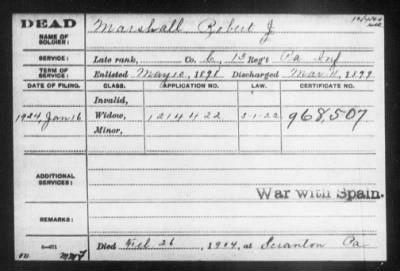 DEAD
NAME OF SOLDIER: Marshall Robert J
SERVICE: Late rank, Co. C, 13 Reg't Pa Inf
TERM OF SERVICE: Enlisted May 12, 1898 Discharged Mar 11, 1899
DATE OF FILING. CLASS. APPLICATION NO. LAW. CERTIFICATE NO.
Invalid,
1924, Jan 16 Widow, 1214422 5-1-22 968,507
Minor,
ADDITIONAL SERVICES:
War with Spain.
REMARKS:
Died Feb 26, 1904, at Scranton Pa